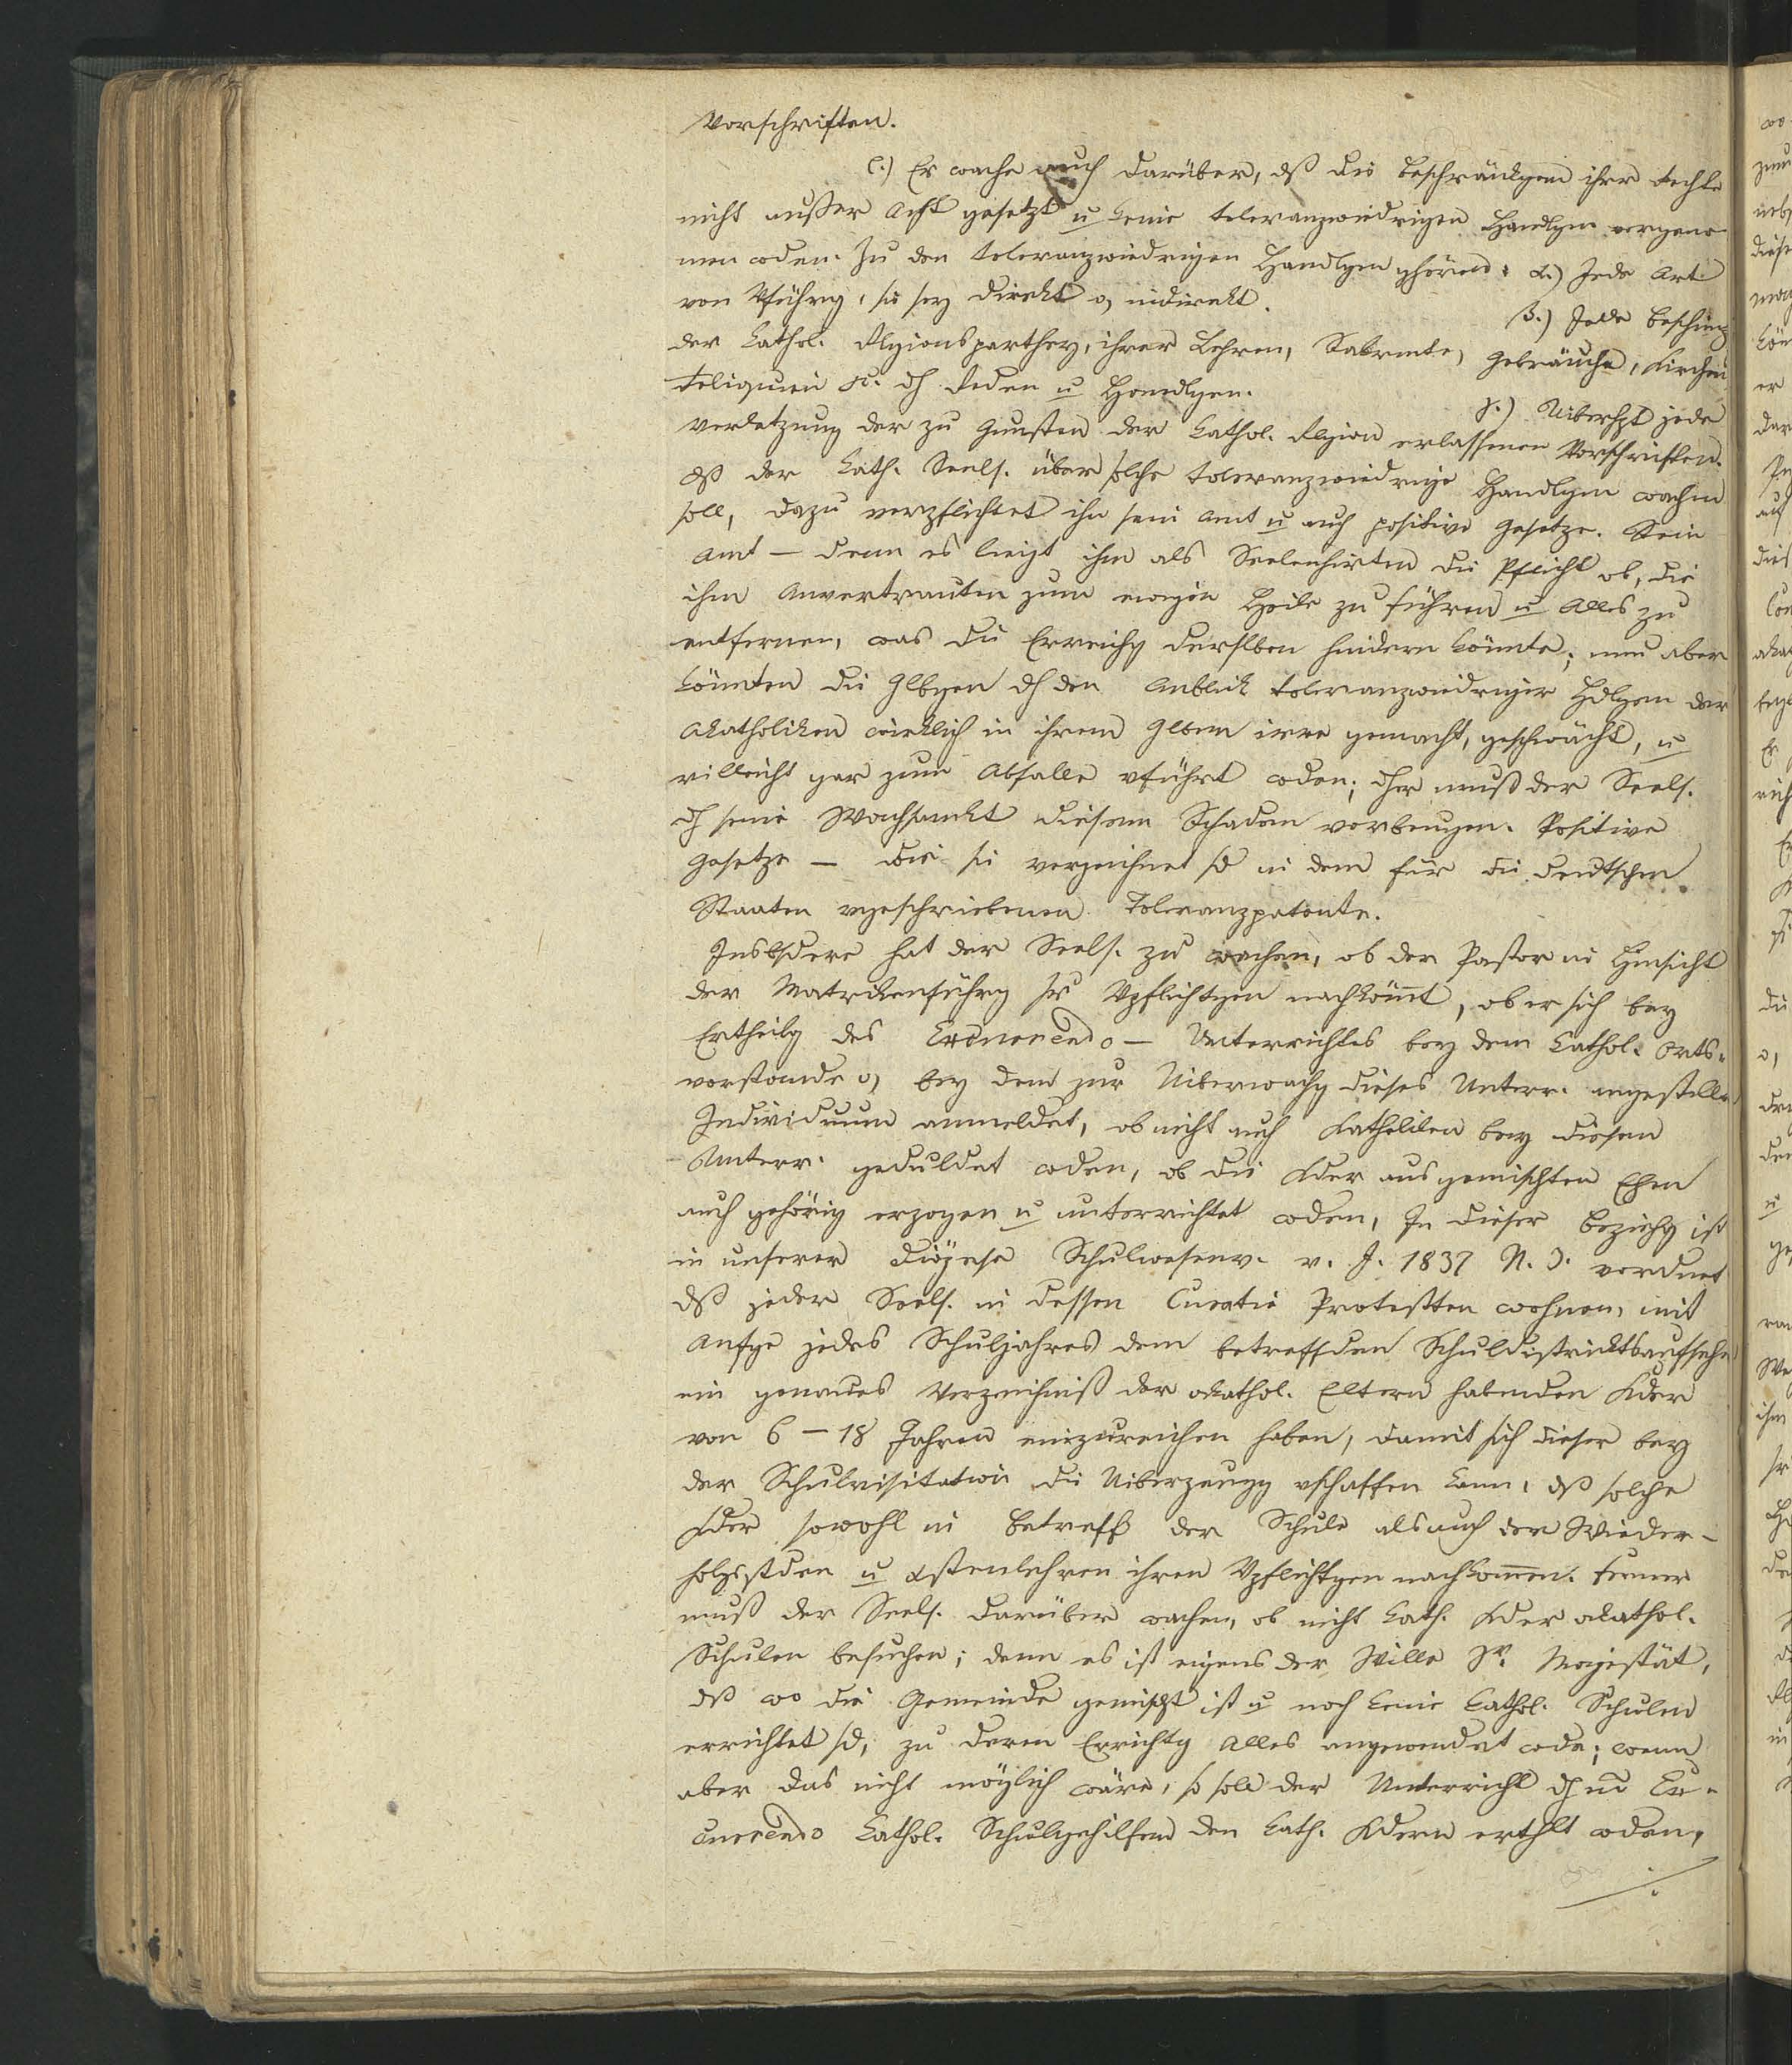 Vorschriften.
c.) Er wache auch darüber, dß die Beschränkgen ihrer Rechte
nicht außer Acht gesetzt u keine toleranzwiedrigen Handlgen vorgenom-
men wden. Zu den toleranzwiedrigen Handlgen ghören: α.) Jede Art
von Vführg, sie sey direkt o, indirekt.
β.) Jede Beschimpfg
der kathol. Rlgionsparthey, ihrer Lehren, Sakrmte, Gebräuche, Kirchen,
Reliquien etc. dch Reden u Handlgen.
γ.) Uiberhpt jede
Verletzung der zu Gunsten der kathol. Rlgion erlassenen Vorschriften.
Dß der kath. Seels. über solche toleranzwiedrige Handlgen wachen
soll, dazu verpflichtet ihn sein Amt u auch positive Gesetze. Sein
Amt — denn es liegt ihm als Seelenhirten die Pflicht ob, die
ihm Anvertrauten zum ewigen Heile zu führen u Alles zu
entfernen, was die Erreichg derslben hindern könnte; nun aber
könnten die Glbgen dch den Anblick toleranzwiedriger Hdlgen der
Akatholiken wirklich in ihrem Glben irre gemacht, geschwächt, u
villeicht gar zum Abfalle vführt wden; dher muß der Seels.
dch seine Wachsamkt diesem Schaden vorbeugen. Positive
Gesetze — wie sie verzeichnet sd in dem für die deutschen
Staaten vgeschriebenen Toleranzpatente.
Insbsdere hat der Seels. zu wachen, ob der Pastor in Hinsicht
der Matrikenführg sr Vpflichtgen nachkömt, ob er sich bey
Ertheilg des Excurrendo — Unterrichtes bey dem kathol. Orts-
vorstande o, bey dem zur Uiberwachg dieses Unterr. angestellten
Individuum anmeldet, ob nicht auch Katholiken bey diesem
Unterr. geduldet wden, ob die Kder aus gemischten Ehen
auch gehörig erzogen u unterrichtet wden, In dieser Beziehg ist
in unserer Diözese Schulwesenv. v. J. 1837 N. 3. verdnet
dß jeder Seels. in dessen Curatie Protestten wohnen, mit
Anfge jedes Schuljahres dem betreffden Schuldistriktsaufseher
ein genaues Verzeichniß der akathol. Eltern habenden Kder
von 6 — 18 Jahren einzureichen haben, damit sich dieser bey
der Schulvisitation die Uiberzeugg vschaffen kann, dß solche
Kder sowohl in Betreff der Schule als auch der Wieder-
holgsstden u Xstenlehren ihren Vpflichtgen nachkommen. Ferner
muß der Seels. darüber wachen, ob nicht kath. Kder akathol.
Schulen besuchen; denn es ist eigens der Wille Sr. Majestät,
dß wo die Gemeinde gemischt ist u noch keine kathol. Schulen
errichtet sd, zu deren Errichtg Alles angewendet wde; wenn
aber das nicht möglich wäre, so soll der Unterricht dch Ex-
currendo kathol. Schulgehilfen den kath. Kdern erthlt wden,
./.